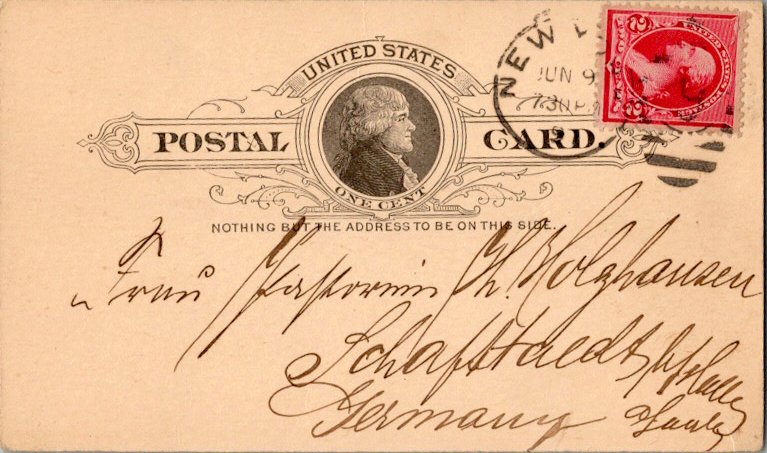 UNITED STATES
POSTAL CARD.
ONE CENT
NOTHING BUT THE ADDRESS TO BE ON THIS SIDE.
NEW
JUN 9
2 2
Frau Pastorin Th. Holzhausen
Schafstaedt b/Halle
Germany Saale